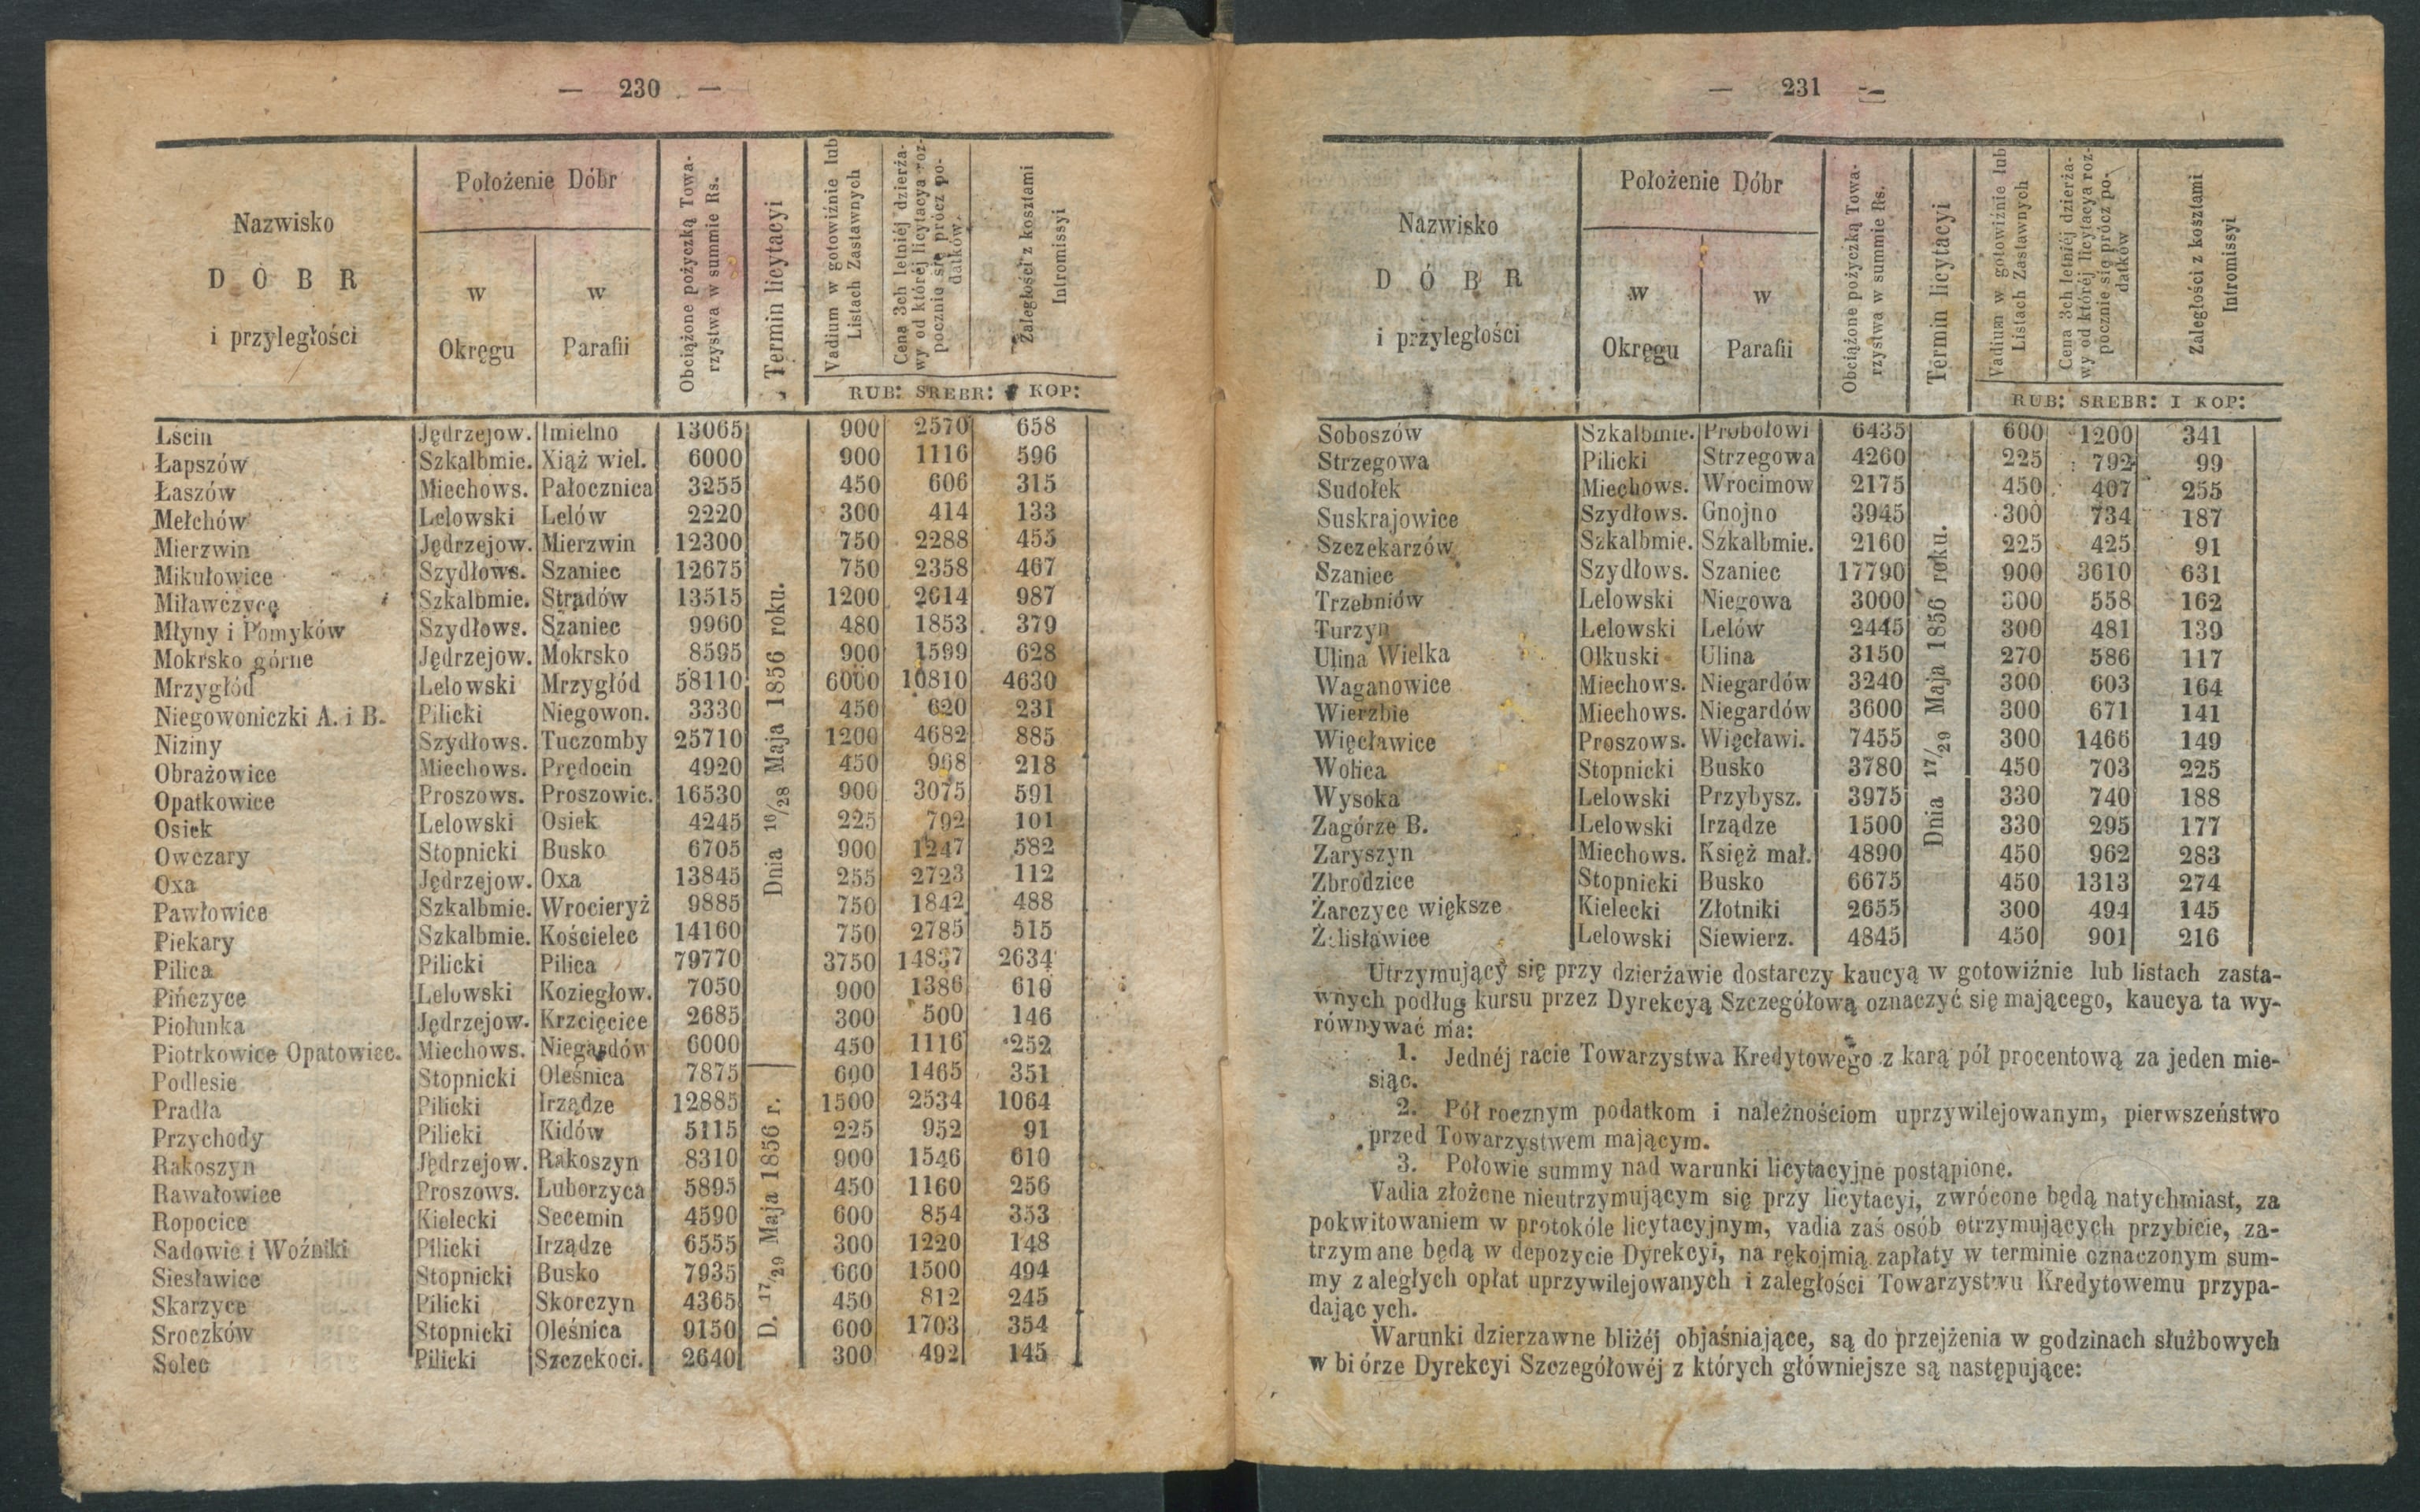 — 230 —
Nazwisko
DÓBR
i przyległości
Położenie Dóbr
w Okręgu
w Parafii
Obciążone pożyczką Towa-
rzystwa w summie Rs.
Termin licytacyi
Vadium w gotowiźnie lub
Listach Zastawnych
Cena 3ch letniéj dzierża-
wy od któréj licytacya roz-
pocznie się prócz po-
datków.
Zaległości z kosztami
Intromissyi
RUB: SREBR: I KOP:
Łscin Jędrzejow. Imielno 13065 900 2570 658
Łapszów Szkalbmie. Xiąż wiel. 6000 900 1116 596
Łaszów Miechows. Pałocznica 3255 450 606 315
Mełchów Lelowski Lelów 2220 300 414 133
Mierzwin Jędrzejow. Mierzwin 12300 750 2288 455
Mikułowice Szydłows. Szaniec 12675 750 2358 467
Miławczyce Szkalbmie. Stradów 13515 1200 2614 987
Młyny i Pomyków Szydłows. Szaniec 9960 480 1853 379
Mokrsko górne Jędrzejow. Mokrsko 8595 900 1599 628
Mrzygłód Lelowski Mrzygłód 58110 6000 10810 4630
Niegowoniczki A. i B. Pilicki Niegowon. 3330 450 620 231
Niziny Szydłows. Tuczomby 25710 1200 4682 885
Obrażowice Miechows. Prędocin 4920 450 968 218
Opatkowice Proszows. Proszowic. 16530 900 3075 591
Osiek Lelowski Osiek 4245 225 792 101
Owczary Stopnicki Busko 6705 900 1247 582
Oxa Jędrzejow. Oxa 13845 255 2723 112
Pawłowice Szkalbmie. Wrocieryż 9885 750 1842 488
Piekary Szkalbmie. Kościelec 14160 750 2785 515
Pilica Pilicki Pilica 79770 3750 14837 2634
Pińczyce Lelowski Koziegłow. 7050 900 1386 610
Piołunka Jędrzejow. Krzcięcice 2685 300 500 146
Piotrkowice Opatowiec. Miechows. Niegardów 6000 450 1116 252
Dnia 16/28 Maja 1856 roku.
Podlesie Stopnicki Oleśnica 7875 600 1465 351
Pradła Pilicki Irządze 12885 1500 2534 1064
Przychody Pilicki Kidów 5115 225 952 91
Rakoszyn Jędrzejow. Rakoszyn 8310 900 1546 610
Rawałowice Proszows. Luborzyca 5895 450 1160 256
Ropocice Kielecki Secemin 4590 600 854 353
Sadowie i Woźniki Pilicki Irządze 6555 300 1220 148
Siesławice Stopnicki Busko 7935 660 1500 494
Skarzyce Pilicki Skorczyn 4365 450 812 245
Sroczków Stopnicki Oleśnica 9150 600 1703 354
Solec Pilicki Szczekoci. 2640 300 492 145
D. 17/29 Maja 1856 r.
— 231 —
Nazwisko
DÓBR
i przyległości
Położenie Dóbr
w Okręgu
w Parafii
Obciążone pożyczką Towa-
rzystwa w summie Rs.
Termin licytacyi
Vadium w gotowiźnie lub
Listach Zastawnych
Cena 3ch letniéj dzierża-
wy od któréj licytacya roz-
pocznie się prócz po-
datków
Zaległości z kosztami
Intromissyi
RUB: SREBR: I KOP:
Soboszów Szkalbmie. Probołowi 6435 600 1200 341
Strzegowa Pilicki Strzegowa 4260 225 792 99
Sudołek Miechows. Wrocimow 2175 450 407 255
Suskrajowice Szydłows. Gnojno 3945 300 734 187
Szczekarzów Szkalbmie. Szkalbmie. 2160 225 425 91
Szaniec Szydłows. Szaniec 17790 900 3610 631
Trzebniów Lelowski Niegowa 3000 300 558 162
Turzyn Lelowski Lelów 2445 300 481 139
Ulina Wielka Olkuski Ulina 3150 270 586 117
Waganowice Miechows. Niegardów 3240 300 603 164
Wierzbie Miechows. Niegardów 3600 300 671 141
Więcławice Proszows. Więcławi. 7455 300 1466 149
Wolica Stopnicki Busko 3780 450 703 225
Wysoka Lelowski Przybysz. 3975 330 740 188
Zagórze B. Lelowski Irządze 1500 330 295 177
Zaryszyn Miechows. Księż mał. 4890 450 962 283
Zbrodzice Stopnicki Busko 6675 450 1313 274
Żarczyce większe Kielecki Złotniki 2655 300 494 145
Żelisławice Lelowski Siewierz. 4845 450 901 216
Dnia 17/29 Maja 1856 roku.
Utrzymujący się przy dzierżawie dostarczy kaucyą w gotowiźnie lub listach zasta-
wnych podług kursu przez Dyrekcyą Szczegółową oznaczyć się mającego, kaucya ta wy-
równywać ma:
1. Jednéj racie Towarzystwa Kredytowego z karą pół procentową za jeden mie-
siąc.
2. Pół rocznym podatkom i należnościom uprzywilejowanym, pierwszeństwo
przed Towarzystwem mającym.
3. Połowie summy nad warunki licytacyjne postąpione.
Vadia złożone nieutrzymującym się przy licytacyi, zwrócone będą natychmiast, za
pokwitowaniem w protokóle licytacyjnym, vadia zaś osób otrzymujących przybicie, za-
trzymane będą w depozycie Dyrekcyi, na rękojmią zapłaty w terminie oznaczonym sum-
my zaległych opłat uprzywilejowanych i zaległości Towarzystwu Kredytowemu przypa-
dając ych.
Warunki dzierzawne bliżéj objaśniające, są do przejżenia w godzinach służbowych
w bi órze Dyrekcyi Szczegółowéj z których główniejsze są następujące: